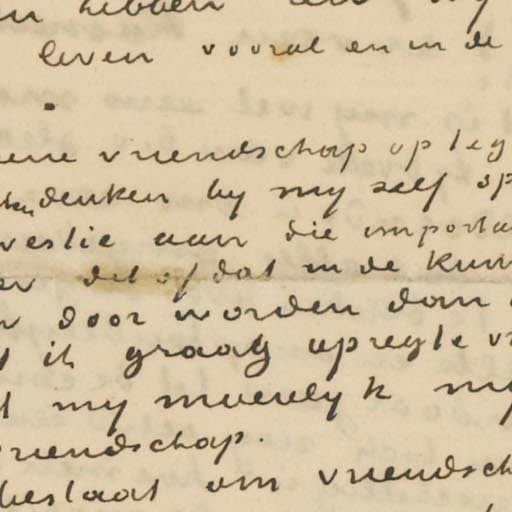 hebben
leven vooral en in de
vriendschap op leg
denken by my self op
vestie aan die importa
dit of dat in de kun
door worden dan
ik graag opregte v
my moeielyk my
riendschap.
bestaat om vriendsch